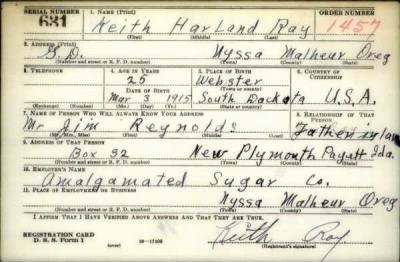 SERIAL NUMBER 1. NAME (Print) ORDER NUMBER
631 Keith Harland Ray 1457
(First) (Middle) (Last)
2. ADDRESS (Print)
G.D. Nyssa Malheur Oreg
(Number and street or R. F. D. number) (Town) (County) (State)
3. TELEPHONE 4. AGE IN YEARS 5. PLACE OF BIRTH 6. COUNTRY OF CITIZENSHIP
25 Webster
DATE OF BIRTH (Town or county)
Mar 3 1915 South Dackota U.S.A.
(Exchange) (Number) (Mo.) (Day) (Yr.) (State or country)
7. NAME OF PERSON WHO WILL ALWAYS KNOW YOUR ADDRESS 8. RELATIONSHIP OF THAT PERSON
Mr Jim Reynolds Father in law
(Mr., Mrs., Miss) (First) (Middle) (Last)
9. ADDRESS OF THAT PERSON
Box 32 New Plymouth Payutt Ida.
(Number and street or R. F. D. number) (Town) (County) (State)
10. EMPLOYER'S NAME
Amalgamated Sugar Co.
11. PLACE OF EMPLOYMENT OR BUSINESS
Nyssa Malheur Oreg
(Number and street or R. F. D. number) (Town) (County) (State)
I AFFIRM THAT I HAVE VERIFIED ABOVE ANSWERS AND THAT THEY ARE TRUE.
REGISTRATION CARD
D. S. S. Form 1 16—17105 Keith Ray
(Registrant's signature)